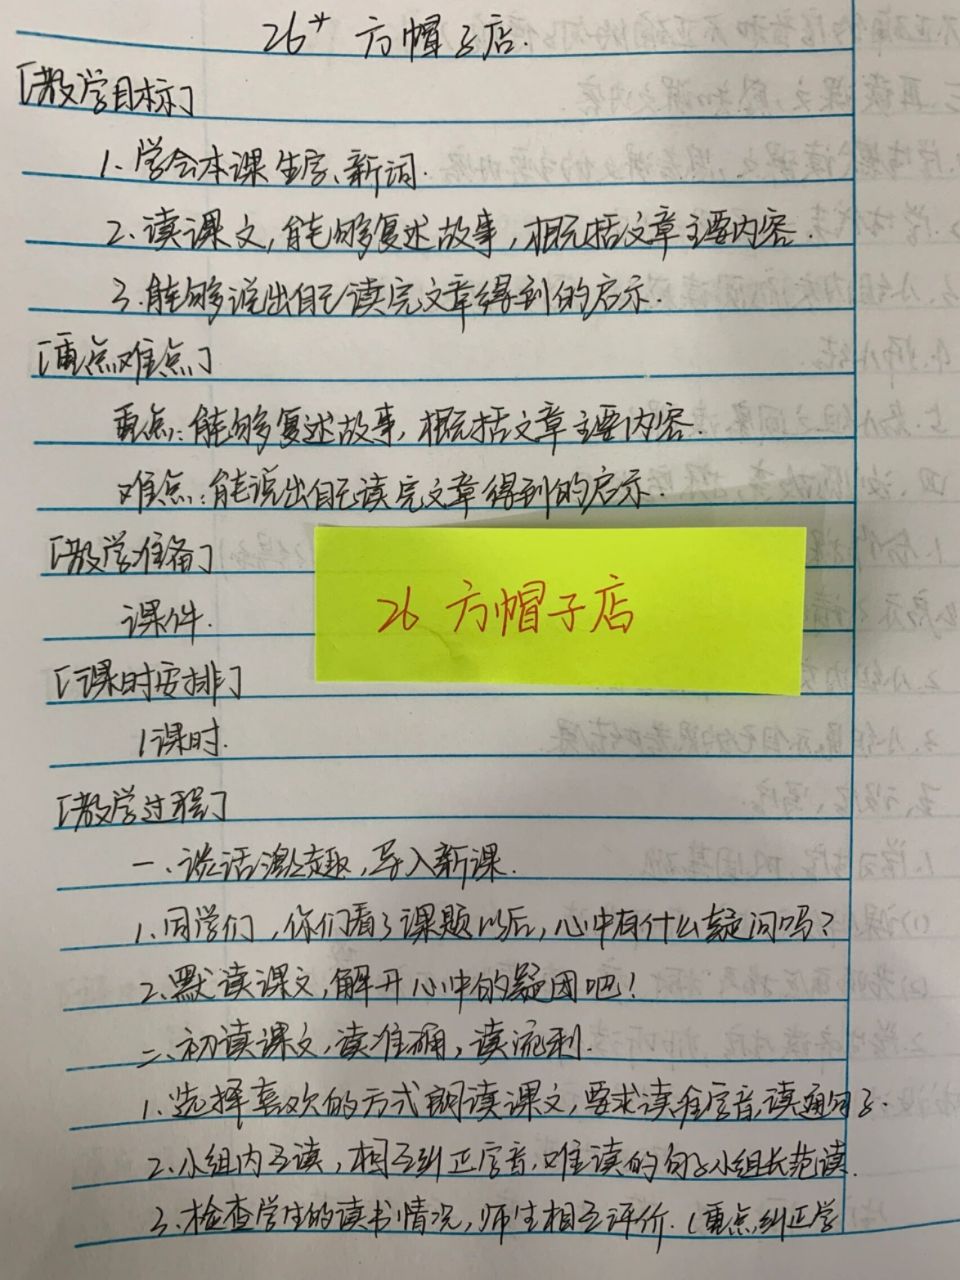 26* 方帽子店.
「教学目标」
1.学会本课生字、新词.
2.读课文,能够复述故事,概括文章主要内容.
3.能够说出自己读完文章得到的启示.
「重点难点」
重点:能够复述故事,概括文章主要内容.
难点:能说出自己读完文章得到的启示.
「教学准备」
课件.
26 方帽子店
「课时安排」
1课时.
「教学过程」
一、谈话激趣,导入新课.
1.同学们,你们看了课题以后,心中有什么疑问吗?
2.默读课文,解开心中的疑团吧!
二、初读课文,读准确,读流利.
1.选择喜欢的方式朗读课文,要求读准字音,读通句子.
2.小组内互读,相互纠正字音,难读的句子小组长范读.
3.检查学生的读书情况,师生相互评价.(重点纠正学